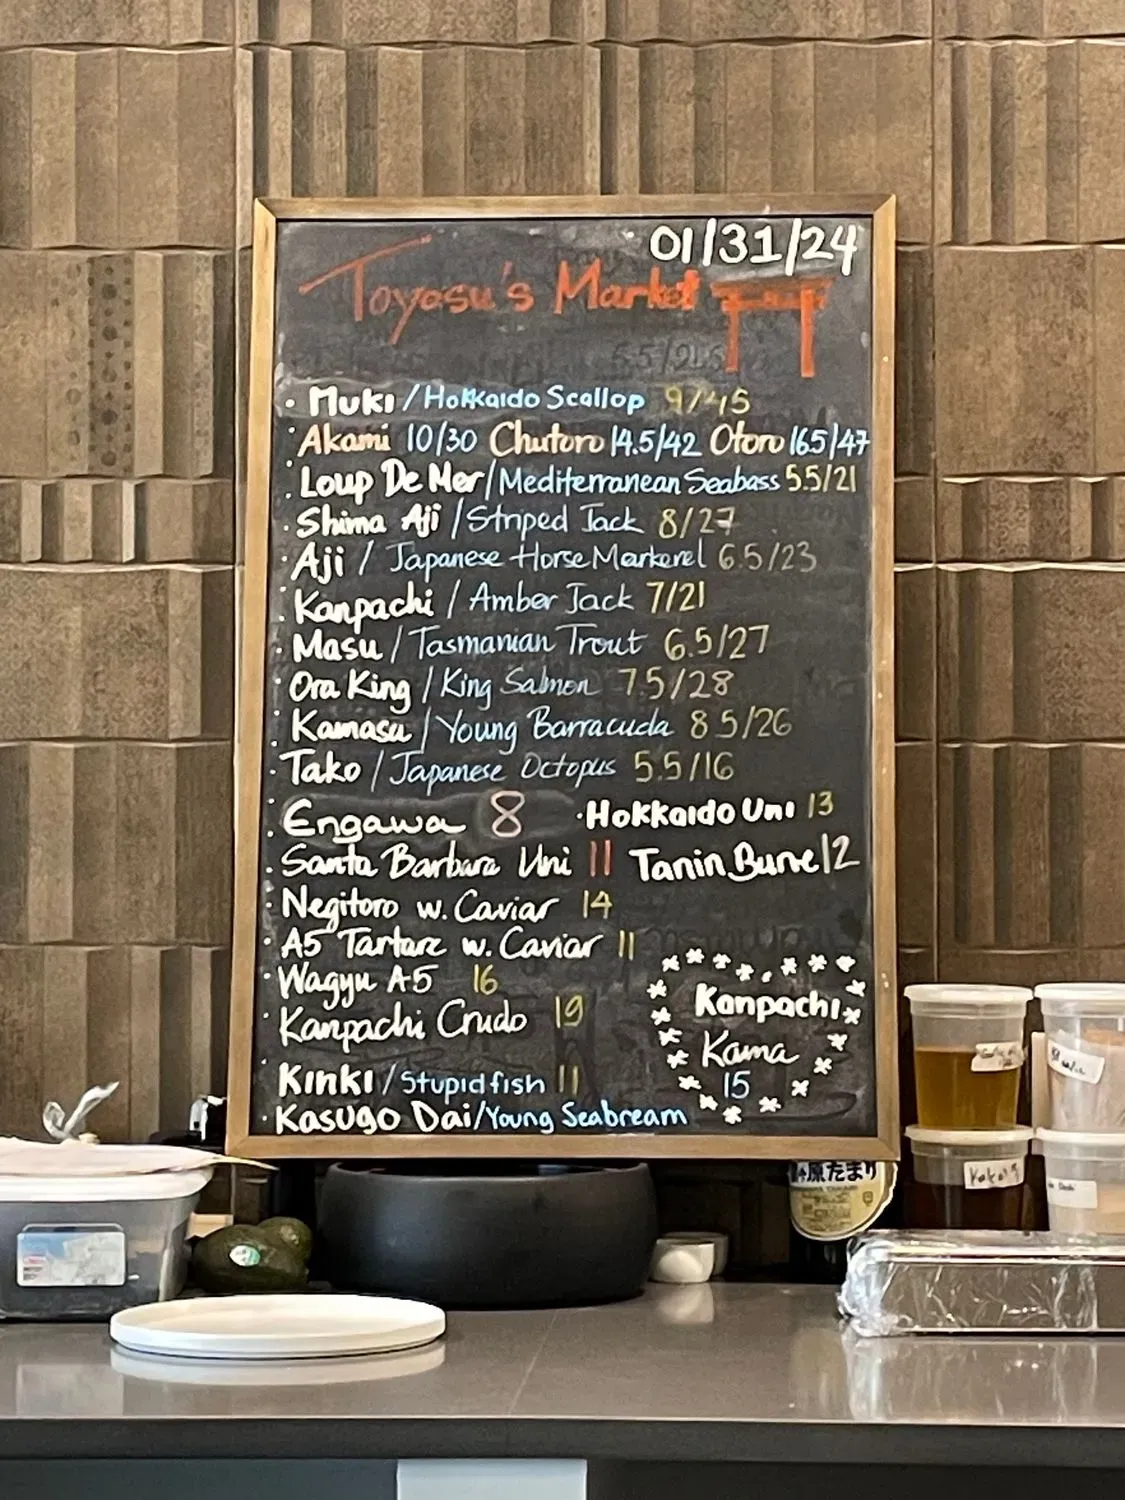 01/31/24
Toyosu's Market
· Muki / Hokkaido Scallop 9/45
· Akami 10/30 Chutoro 14.5/42 Otoro 16.5/47
· Loup De Mer / Mediterranean Seabass 5.5/21
· Shima Aji / Striped Jack 8/27
· Aji / Japanese Horse Markerel 6.5/23
· Kanpachi / Amber Jack 7/21
· Masu / Tasmanian Trout 6.5/27
· Ora King / King Salmon 7.5/28
· Kamasu / Young Barracuda 8.5/26
· Tako / Japanese Octopus 5.5/16
· Engawa 8 · Hokkaido Uni 13
· Santa Barbara Uni 11 Tanin Bune 12
· Negitoro w. Caviar 14
· A5 Tartare w. Caviar 11
· Wagyu A5 16
· Kanpachi Crudo 19
Kanpachi
Kama
15
· Kinki / Stupid fish 11
· Kasugo Dai / Young Seabream
原たまり